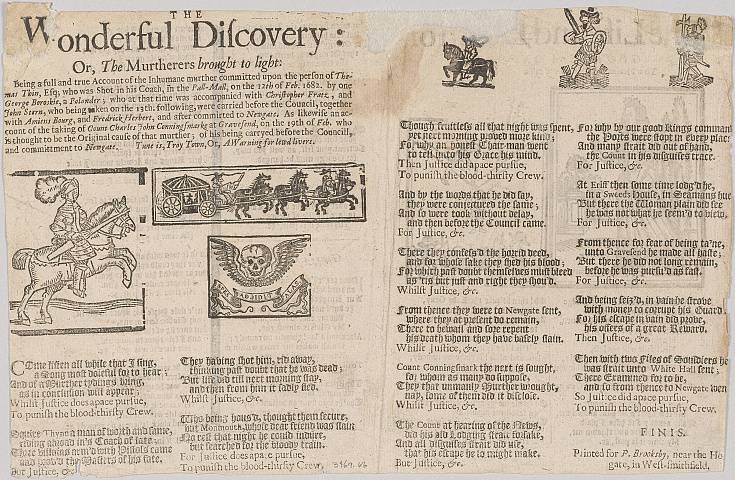 THE
Wonderful Discovery:
Or, The Murtherers brought to light:
Being a full and true Account of the Inhumane murther committed upon the person of Tho-
mas Thin, Esq; who was Shot in his Coach, in the Pall-Mall, on the 12th of Feb. 1682. by one
George Boroskie, a Polander; who at that time was accompanied with Christopher Fratz, and
John Stern, who being taken on the 13th. following, were carried before the Council, together
with Amiens Bourg, and Fredrick Herbert, and after committed to Newgate. As likewise an ac-
count of the taking of Count Charles John Conningsmark at Gravesend, on the 19th of Feb. who
is thought to be the Original cause of that murther; of his being carryed before the Council,
and commitment to Newgate. Tune is, Troy Town, Or, A Warning for lewd livers.
COme listen all while that I sing,
a Song most doleful for to hear;
And of a Murther tydings bring,
as in conclusion will appear;
Whilst Justice does apace pursue,
To punish the blood-thirsty Crew.
Squire Thynn a man of worth and fame,
riding abroad in's Coach of late,
Three villains arm'd with Pistols came
and prov'd the Masters of his fate.
But Justice, &c.
They having shot him, rid away,
thinking past doubt that he was dead;
But life did till next morning stay,
and then from him it sadly fled.
Whilst Justice, &c.
Who being hous'd, thought them secure,
but Monmouth, whose dear friend was slain
No rest that night he could indure,
but searched for the bloody train.
For Justice does apace pursue,
To punish the blood-thirsty Crew.
Though fruitless all that night was spent,
yet next morning proved more kind;
For, why an honest Chair-man went
to tell unto his Grace his mind.
Then Justice did apace pursue,
To punish the blood-thirsty Crew.
And by the words that he did say,
they were conjectured the same;
And so were took without delay,
and then before the Council came.
For Justice, &c.
There they confess'd the horrid deed,
and for whose sake they shed his blood;
For which past doubt themselves must bleed
as 'tis but just and right they shou'd.
Whilst Justice, &c.
From thence they were to Newgate sent,
where they at present do remain,
There to bewail and sore repent
his death whom they have basely slain.
Whilst Justice, &c.
Count Conningsmark the next is sought,
for, whom as many do suppose,
They that unmanly Murther wrought,
nay, some of them did it disclose.
Whilst Justice, &c.
The Count at hearing of the News,
did his old Lodging straw forsake,
And all disguises strait did use,
that his escape he to might make.
But Justice, &c.
For, why by our good Kings command
the Ports were stopt in every place
And many strait did out of hand,
the Count in his disguises trace.
For Justice, &c.
At Eriff then some time lodg'd he,
in a Sweeds House, in Seamans hue
But there the Woman plain did see
he was not what he seem'd to view.
For Justice, &c.
From thence for fear of being ta'ne,
unto Gravesend he made all haste;
But there he did not long remain,
before he was pursu'd as fast.
For Justice, &c.
And being seiz'd, in vain he strove
with money to corrupt his Guard
For, his escape in vain did prove,
his offers of a great Reward.
Then Justice, &c.
Then with two Files of Souldiers he
was strait unto White Hall sent;
There Examined for to be,
and so from thence to Newgate went
So Justice did apace pursue,
To punish the blood-thirsty Crew.
FINIS.
Printed for P. Brooksby, near the Ho
gate, in West-smithfield.